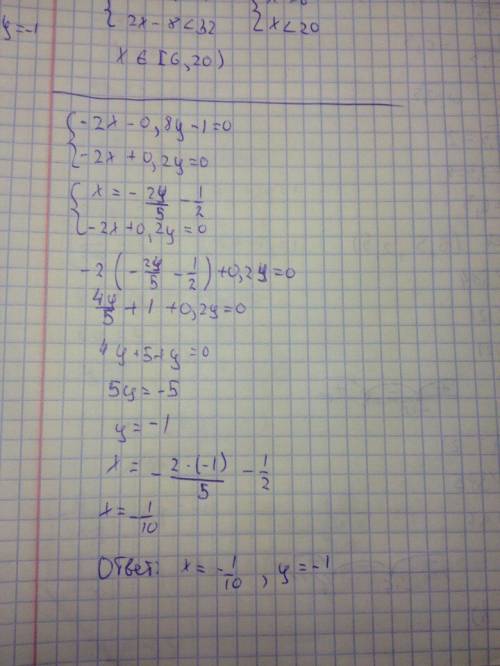 y=-1
{ 2x-8<32 { x<20
x ∈ [6,20)
{ -2x-0,8y-1=0
{ -2x+0,2y=0
{ x=-2y/5-1/2
{ -2x+0,2y=0
-2(-2y/5-1/2)+0,2y=0
4y/5+1+0,2y=0
4y+5+y=0
5y=-5
y=-1
x=-2·(-1)/5-1/2
x=-1/10
Ответ: x=-1/10, y=-1